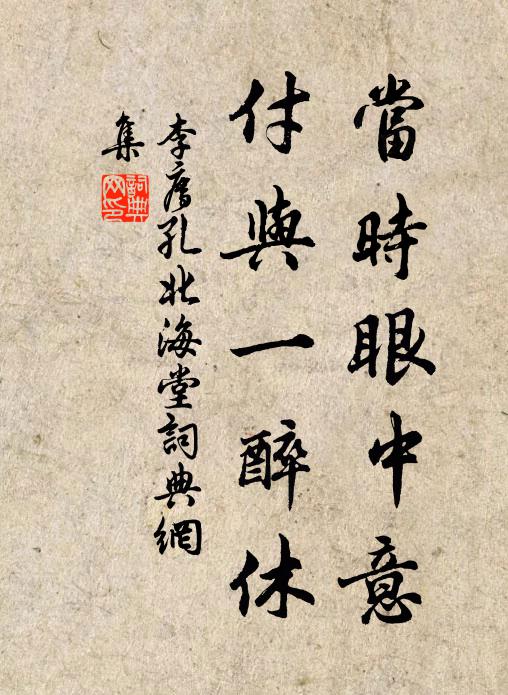 當時眼中意
付與一醉休
李廌孔北海堂詞典網
集
詞典網印